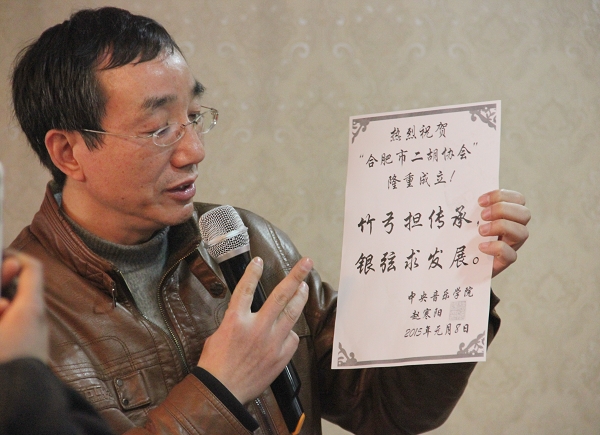 热烈祝贺
“合肥市二胡协会”
隆重成立！
竹弓担传承，
银弦求发展。
中央音乐学院
赵寒阳
2015年元月8日